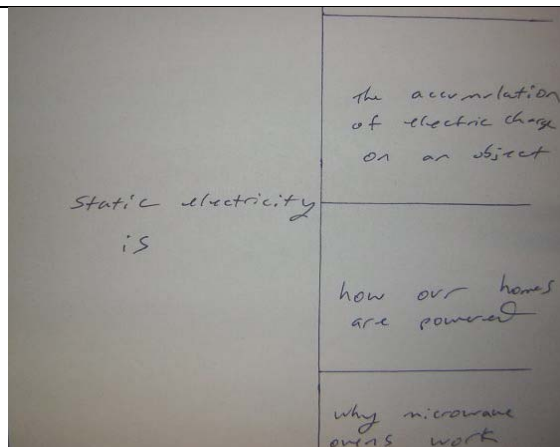 Static electricity
is
the accumulation
of electric charge
on an object
how our homes
are powered
why microwave
ovens work